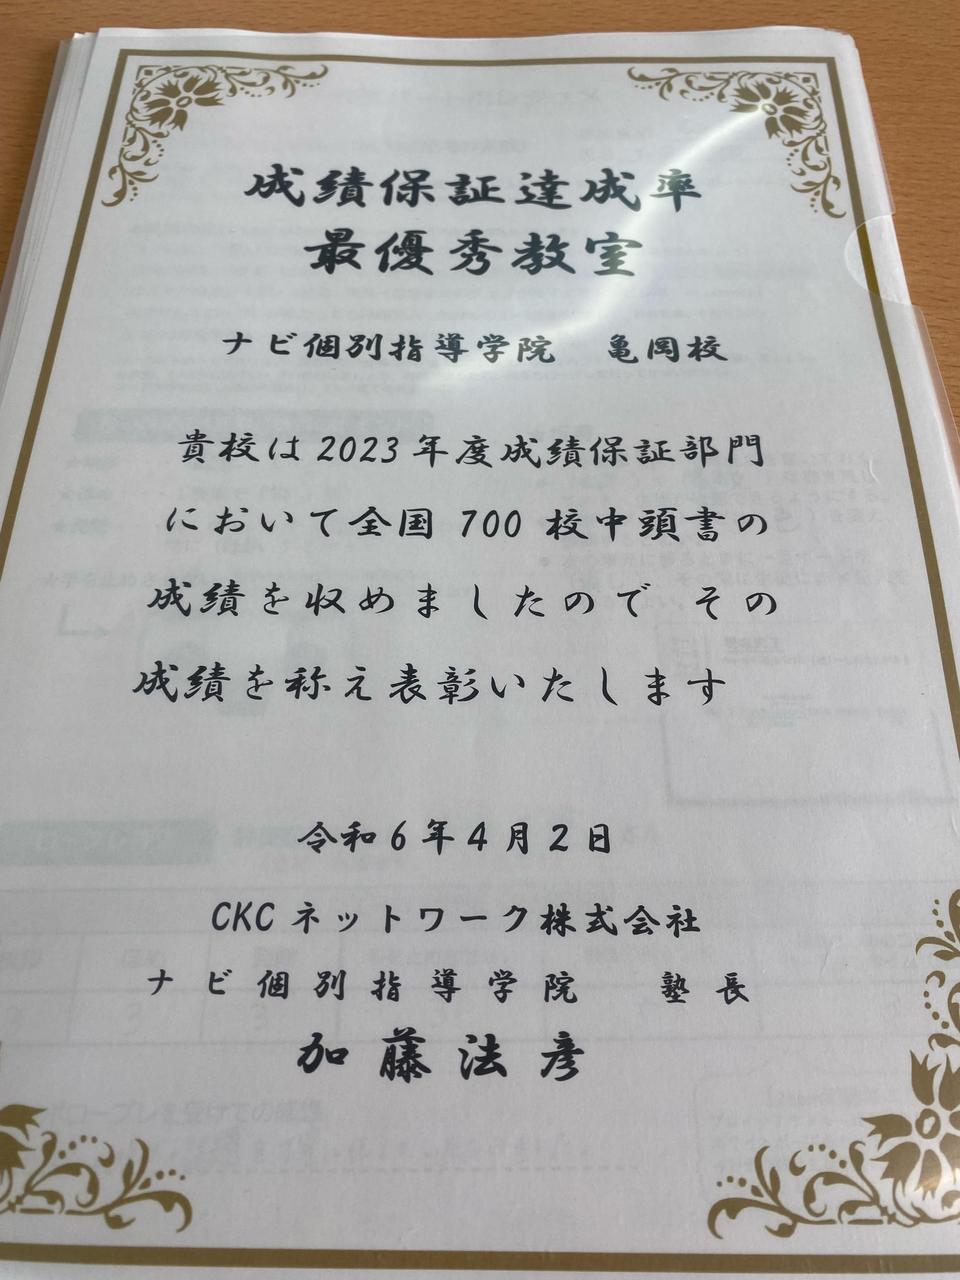 成績保証達成率
最優秀教室
ナビ個別指導学院 亀岡校
貴校は2023年度成績保証部門
において全国700校中頭書の
成績を収めましたので その
成績を称え表彰いたします
令和6年4月2日
CKCネットワーク株式会社
ナビ個別指導学院 塾長
加藤法彦